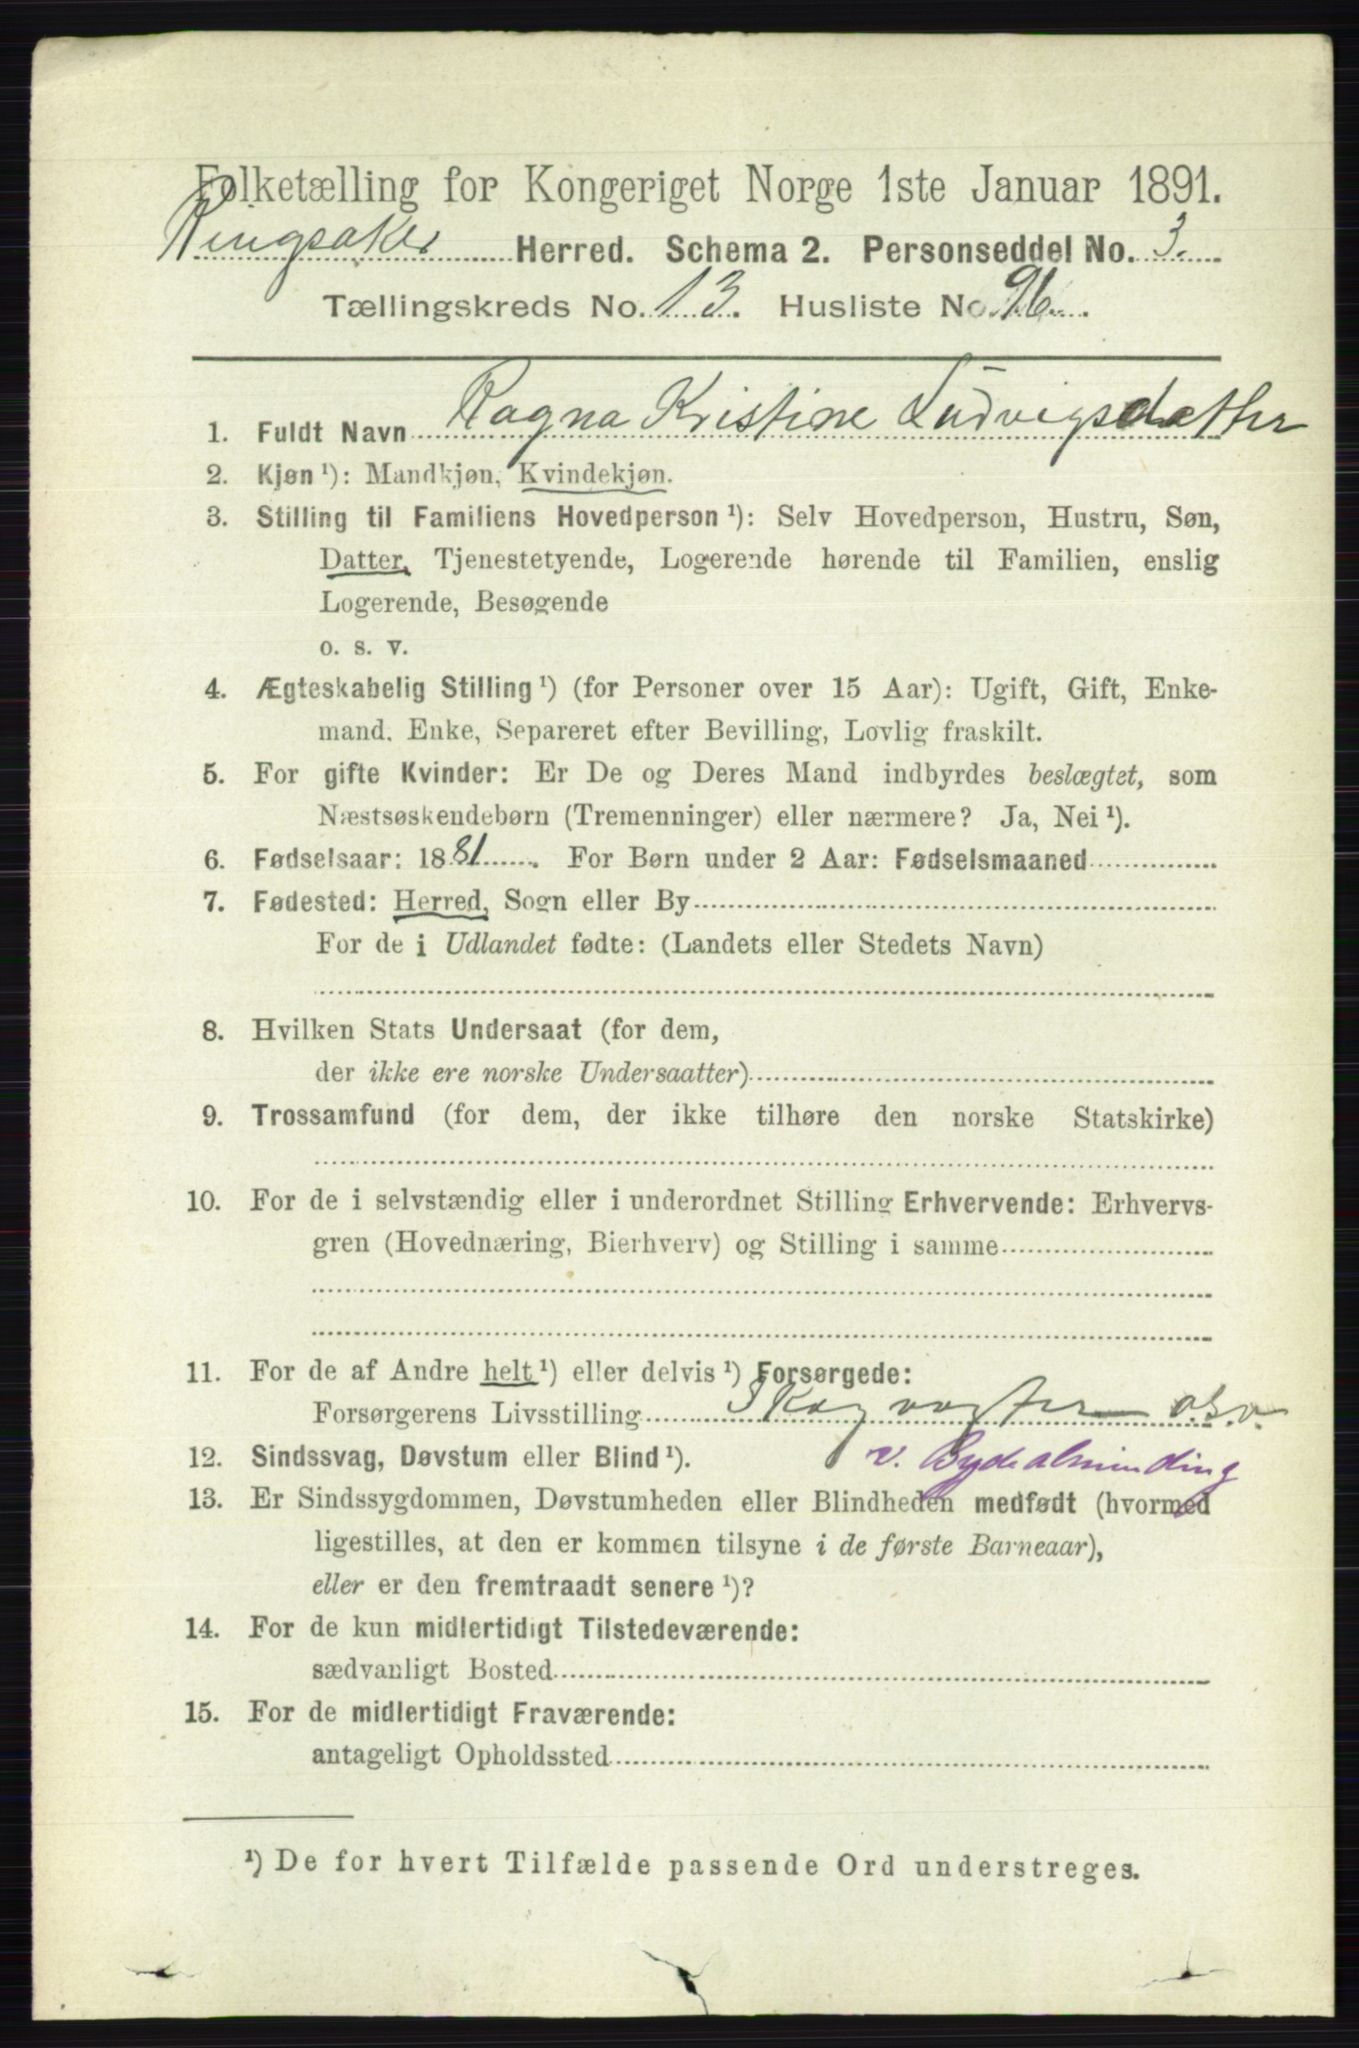 Folketælling for Kongeriget Norge 1ste Januar 1891.
Ringsaker Herred. Schema 2. Personseddel No. 3.
Tællingskreds No. 13. Husliste No. 96.
1. Fuldt Navn Ragna Kristine Ludvigsdatter
2. Kjøn ¹): Mandkjøn, Kvindekjøn.
3. Stilling til Familiens Hovedperson ¹): Selv Hovedperson, Hustru, Søn,
Datter, Tjenestetyende, Logerende hørende til Familien, enslig
Logerende, Besøgende
o. s. v.
4. Ægteskabelig Stilling ¹) (for Personer over 15 Aar): Ugift, Gift, Enke-
mand, Enke, Separeret efter Bevilling, Lovlig fraskilt.
5. For gifte Kvinder: Er De og Deres Mand indbyrdes beslægtet, som
Næstsøskendebørn (Tremenninger) eller nærmere? Ja, Nei ¹).
6. Fødselsaar: 1881. For Børn under 2 Aar: Fødselsmaaned
7. Fødested: Herred, Sogn eller By
For de i Udlandet fødte: (Landets eller Stedets Navn)
8. Hvilken Stats Undersaat (for dem,
der ikke ere norske Undersaatter)
9. Trossamfund (for dem, der ikke tilhøre den norske Statskirke)
10. For de i selvstændig eller i underordnet Stilling Erhvervende: Erhvervs-
gren (Hovednæring, Bierhverv) og Stilling i samme
11. For de af Andre helt ¹) eller delvis ¹) Forsørgede:
Forsørgerens Livsstilling Skogvogter o.s.v.
12. Sindssvag, Døvstum eller Blind ¹). v. Bydealminding
13. Er Sindssygdommen, Døvstumheden eller Blindheden medfødt (hvormed
ligestilles, at den er kommen tilsyne i de første Barneaar),
eller er den fremtraadt senere ¹)?
14. For de kun midlertidigt Tilstedeværende:
sædvanligt Bosted
15. For de midlertidigt Fraværende:
antageligt Opholdssted
¹) De for hvert Tilfælde passende Ord understreges.